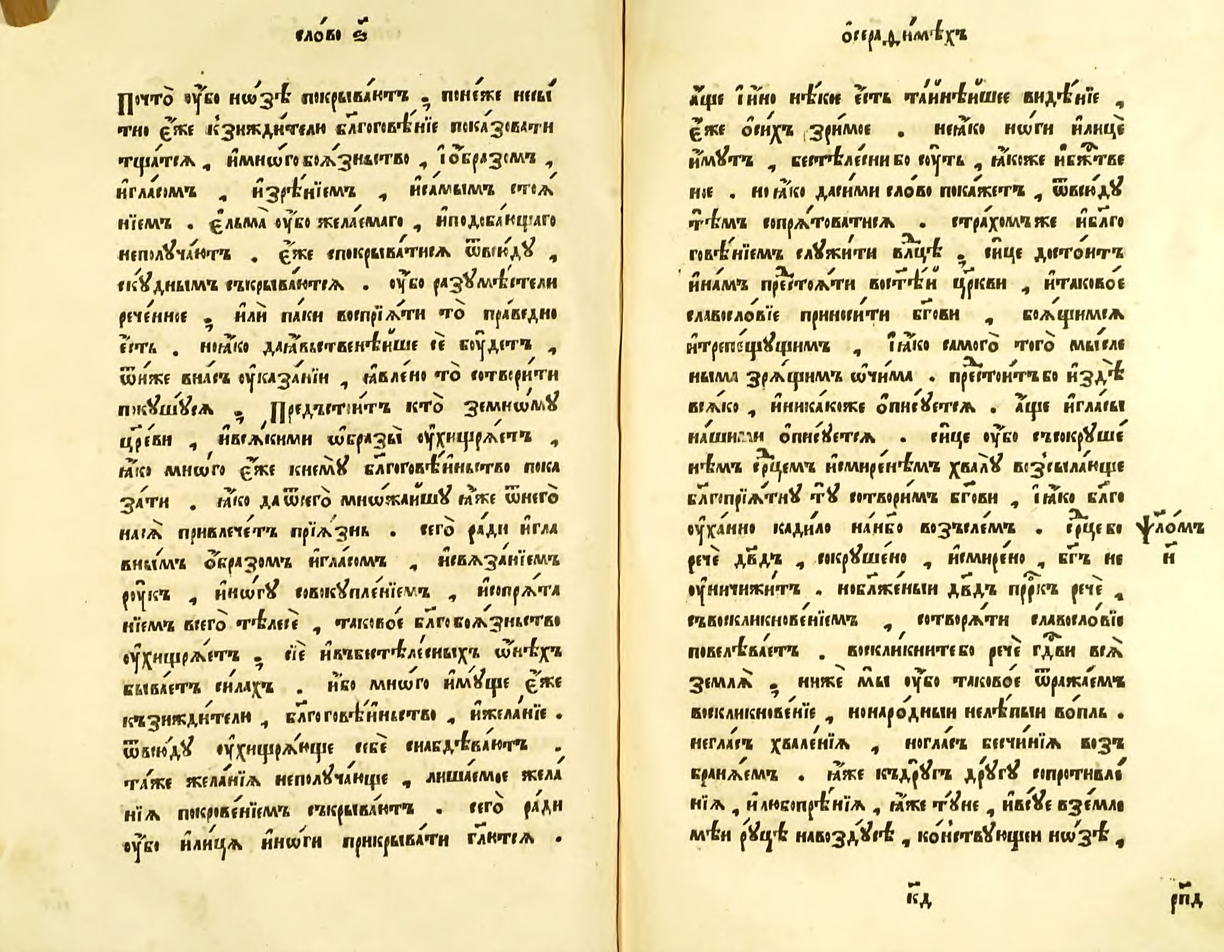 сло́во ѕ҃
Почто̀ оу҆́бо нѡ́зѣ покрыва́ютъ ; поне́же несы́
тно є҆́же кзижди́тели бл҃гоговѣ́нїе показовати
тща́тсѧ , и҆мно́гѡ боѧ́зньство , і҆ о҆́бразомъ ,
и҆гла́сомъ , и҆зрѣ́нїемъ , и҆са́мымъ стоѧ́
нїемъ . є҆льма̀ оу҆́бо жела́емаго , и҆подоба́ющаго
неполꙋча́ютъ . є҆́же спокрыва́тисѧ ѿвсю́дꙋ ,
скꙋ́днымъ съкрыва́ютсѧ . оу҆́бо разꙋмѣ́стели
рече́нное ; и҆лѝ па́ки воспрїѧ́ти то̀ пра́ведно
є҆́сть . но ꙗ҆́ко да ꙗ҆́вьственѣйше сѐ бꙋ́детъ ,
ѿни́же вна́съ оу҆каза́нїи , ꙗ҆́влено то̀ сотвори́ти
покꙋшꙋ́сѧ ; Предъстои́тъ кто̀ земно́мꙋ
цр҃е́ви , и҆всѧ́кими ѡ҆́бразы оу҆хищрѧ́етъ ,
ꙗ҆́ко мно́гѡ є҆́же кнемꙋ̀ бл҃гоговѣ́йньство пока
за́ти . ꙗ҆́ко да ѿсего̀ мнѡ́жайшꙋ ꙗ҆́же ѿнего̀
насѧ̀ привлече́тъ прїѧ́знь . сего̀ ра́ди и҆гла
вны́мъ о҆́бразомъ и҆гла́сомъ , и҆свѧза́нїемъ
рꙋ́къ , и҆но́гꙋ совокꙋпле́нїемъ , и҆сопрѧ́та
нїемъ всего̀ тѣ́лесѐ , таково́е бл҃гобоѧ́зньство
оу҆хищрѧ́етъ ; сїѐ и҆въбестѣле́сныхъ ѡ҆нѣ́хъ
быва́етъ си́лахъ . и҆́бо мно́гѡ и҆мꙋ́ще є҆́же
къзижди́тели , бл҃гоговѣ́йньство , и҆жела́нїе .
ѿвсю́дꙋ оу҆хищрѧ́юще себѐ снабдѣва́ютъ .
та́же жела́нїѧ неполꙋча́юще , лиша́емое жела́
нїѧ покрове́нїемъ съкрыва́ютъ . сего̀ ра́ди
оу҆́бо и҆лица̀ и҆но́ги прикрыва́ти гл҃ютсѧ .
ѡ҆серафи́мѣхъ
а҆́ще і҆и́но нѣ́кое є҆́сть та́йнѣйшее видѣ́нїе ,
є҆́же о҆си́хъ зри́мое . не ꙗ҆́ко но́ги и҆лицѐ
и҆́мꙋтъ , бестѣле́сни бо сꙋ́ть , ꙗ҆́коже и҆бж҃тве
ное . но ꙗ҆́ко да си́ми сло́во пока́жетъ , ѿвсю́дꙋ
тѣ́мъ сопрѧ́товатисѧ . стра́хомъже и҆бл҃го
говѣ́нїемъ слꙋжи́ти влⷣцѣ ; си́це досто́итъ
и҆на́мъ престоѧ́ти востѣ́й цр҃кви , и҆таково́е
славосло́вїе приноси́ти бг҃ови , боѧ́щимсѧ
и҆трепе́щꙋщимъ , і҆ ꙗ҆́ко самого̀ того̀ мы́сле
ныма зрѧ́щимъ ѻ҆чи́ма . престои́тъ бо и҆здѣ̀
всѧ́ко , и҆ника́коже ѻ҆пи́сꙋетсѧ . а҆́ще и҆гласы̀
на́шими ѻ҆пи́сꙋетсѧ . си́це оу҆́бо съсокрꙋше́
нѣмъ срⷣцемъ и҆смире́нѣмъ хвалꙋ̀ возсыла́юще
бл҃гопрїѧ́тнꙋ тꙋ̀ сотвори́мъ бг҃ови , і҆ ꙗ҆́ко бл҃го
оу҆ха́нно кади́ло на́нбо возъсле́мъ . срⷣце бо
речѐ дв҃дъ , сокрꙋше́но , и҆смире́но , бг҃ъ не
оу҆ничижи́тъ . но бл҃же́ныи дв҃дъ прⷪ҇ркъ речѐ ,
съвосклиⷦновенїемъ , сотворѧ́ти славосло́вїе
повелѣва́етъ . воскликни́те бо речѐ гдⷭ҇ви всѧ̀
землѧ̀ ; ниже мы̀ оу҆́бо таково́е ѿража́емъ
воскликнове́нїе , нонаро́дныи нелѣ́пыи во́пль .
негла́съ хвале́нїѧ , но гла́съ бесчи́нїѧ возъ
бранѧ́емъ . ꙗ҆́же къдрꙋ́гъ дрꙋ́гꙋ сопротивле́
нїѧ , и҆любопрѣ́нїѧ , ꙗ҆́же тꙋ́не , и҆всꙋ́е взе́мле
мѣи рꙋ́цѣ навоздꙋ́сѣ , ко́иствꙋющеи но́зѣ ,
ѱало́мъ
н҃
к҃д
рп҃д